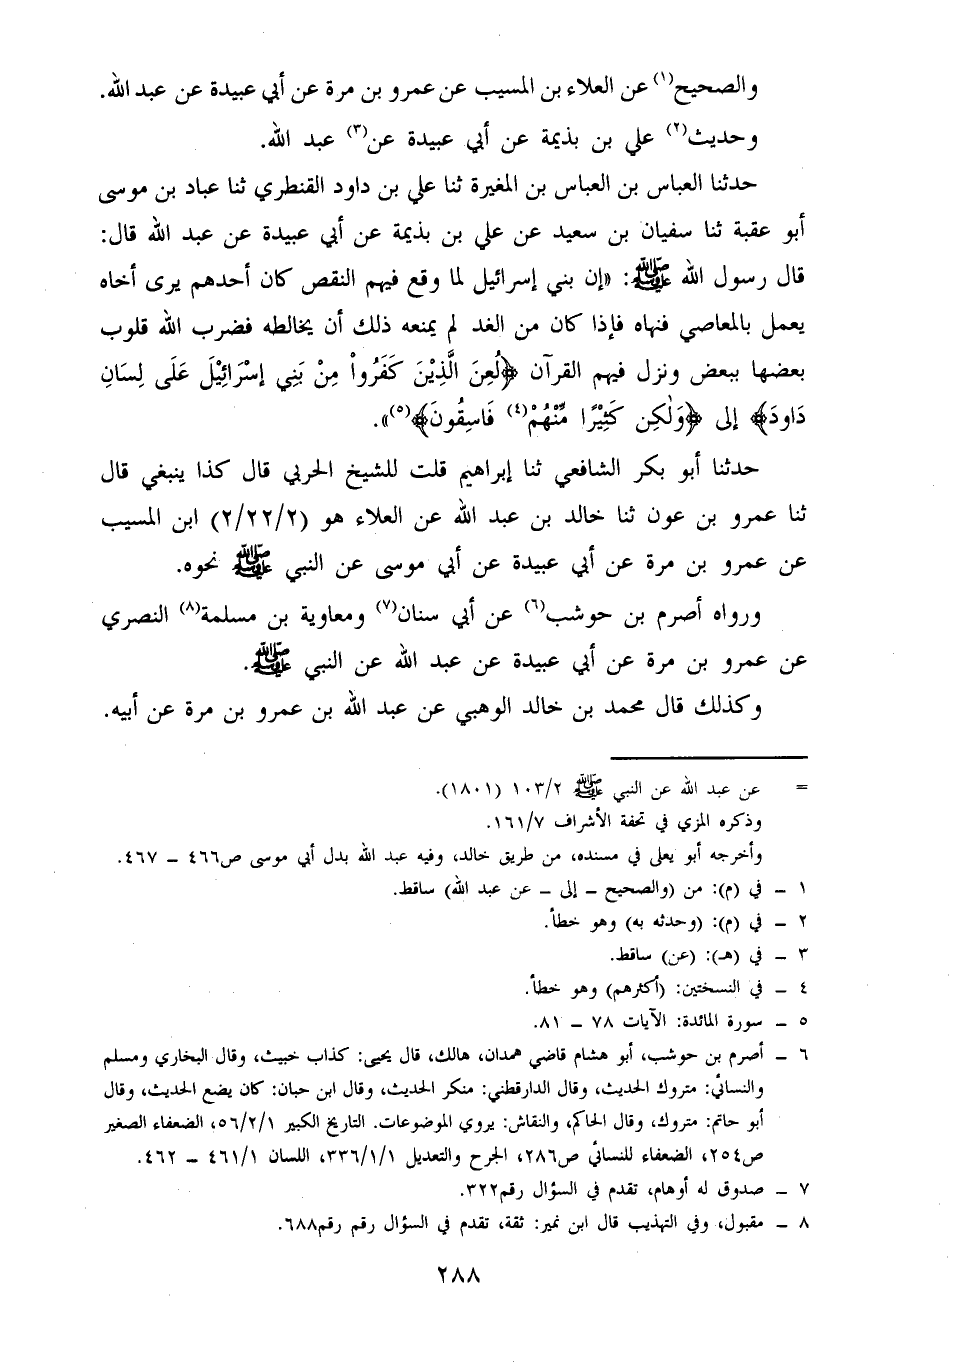 والصحيح(١) عن العلاء بن المسيب عن عمرو بن مرة عن أبي عبيدة عن عبد الله.
وحديث(٢) علي بن بذيمة عن أبي عبيدة عن(٣) عبد الله.
حدثنا العباس بن العباس بن المغيرة ثنا علي بن داود القنطري ثنا عباد بن موسى
أبو عقبة ثنا سفيان بن سعيد عن علي بن بذيمة عن أبي عبيدة عن عبد الله قال:
قال رسول الله ﷺ: «إن بني إسرائيل لما وقع فيهم النقص كان أحدهم يرى أخاه
يعمل بالمعاصي فنهاه فإذا كان من الغد لم يمنعه ذلك أن يخالطه فضرب الله قلوب
بعضها ببعض ونزل فيهم القرآن ﴿لُعِنَ الَّذِيْنَ كَفَرُواْ مِنْ بَنِي إسْرَائِيْلَ عَلَى لِسَانِ
دَاودَ﴾ إلى ﴿وَلٰكِن كَثِيْرًا مِّنْهُمْ(٤) فَاسِقُونَ﴾(٥)».
حدثنا أبو بكر الشافعي ثنا إبراهيم قلت للشيخ الحربي قال كذا ينبغي قال
ثنا عمرو بن عون ثنا خالد بن عبد الله عن العلاء هو (٢/٢٢/٢) ابن المسيب
عن عمرو بن مرة عن أبي عبيدة عن أبي موسى عن النبي ﷺ نحوه.
ورواه أصرم بن حوشب(٦) عن أبي سنان(٧) ومعاوية بن مسلمة(٨) النصري
عن عمرو بن مرة عن أبي عبيدة عن عبد الله عن النبي ﷺ.
وكذلك قال محمد بن خالد الوهبي عن عبد الله بن عمرو بن مرة عن أبيه.
= عن عبد الله عن النبي ﷺ ١٠٣/٢ (١٨٠١).
وذكره المزي في تحفة الأشراف ١٦١/٧.
وأخرجه أبو يعلى في مسنده، من طريق خالد، وفيه عبد الله بدل أبي موسى ص٤٦٦ – ٤٦٧.
١ – في (م): من (والصحيح – إلى – عن عبد الله) ساقط.
٢ – في (م): (وحدثه به) وهو خطأ.
٣ – في (هـ): (عن) ساقط.
٤ – في النسختين: (أكثرهم) وهو خطأ.
٥ – سورة المائدة: الآيات ٧٨ – ٨١.
٦ – أصرم بن حوشب، أبو هشام قاضي همدان، هالك، قال يحيى: كذاب خبيث، وقال البخاري ومسلم
والنسائي: متروك الحديث، وقال الدارقطني: منكر الحديث، وقال ابن حبان: كان يضع الحديث، وقال
أبو حاتم: متروك، وقال الحاكم، والنقاش: يروي الموضوعات. التاريخ الكبير ٥٦/٢/١، الضعفاء الصغير
ص٢٥٤، الضعفاء للنسائي ص٢٨٦، الجرح والتعديل ٣٣٦/١/١، اللسان ٤٦١/١ – ٤٦٢.
٧ – صدوق له أوهام، تقدم في السؤال رقم٣٢٢.
٨ – مقبول، وفي التهذيب قال ابن نمير: ثقة، تقدم في السؤال رقم رقم٦٨٨.
٢٨٨